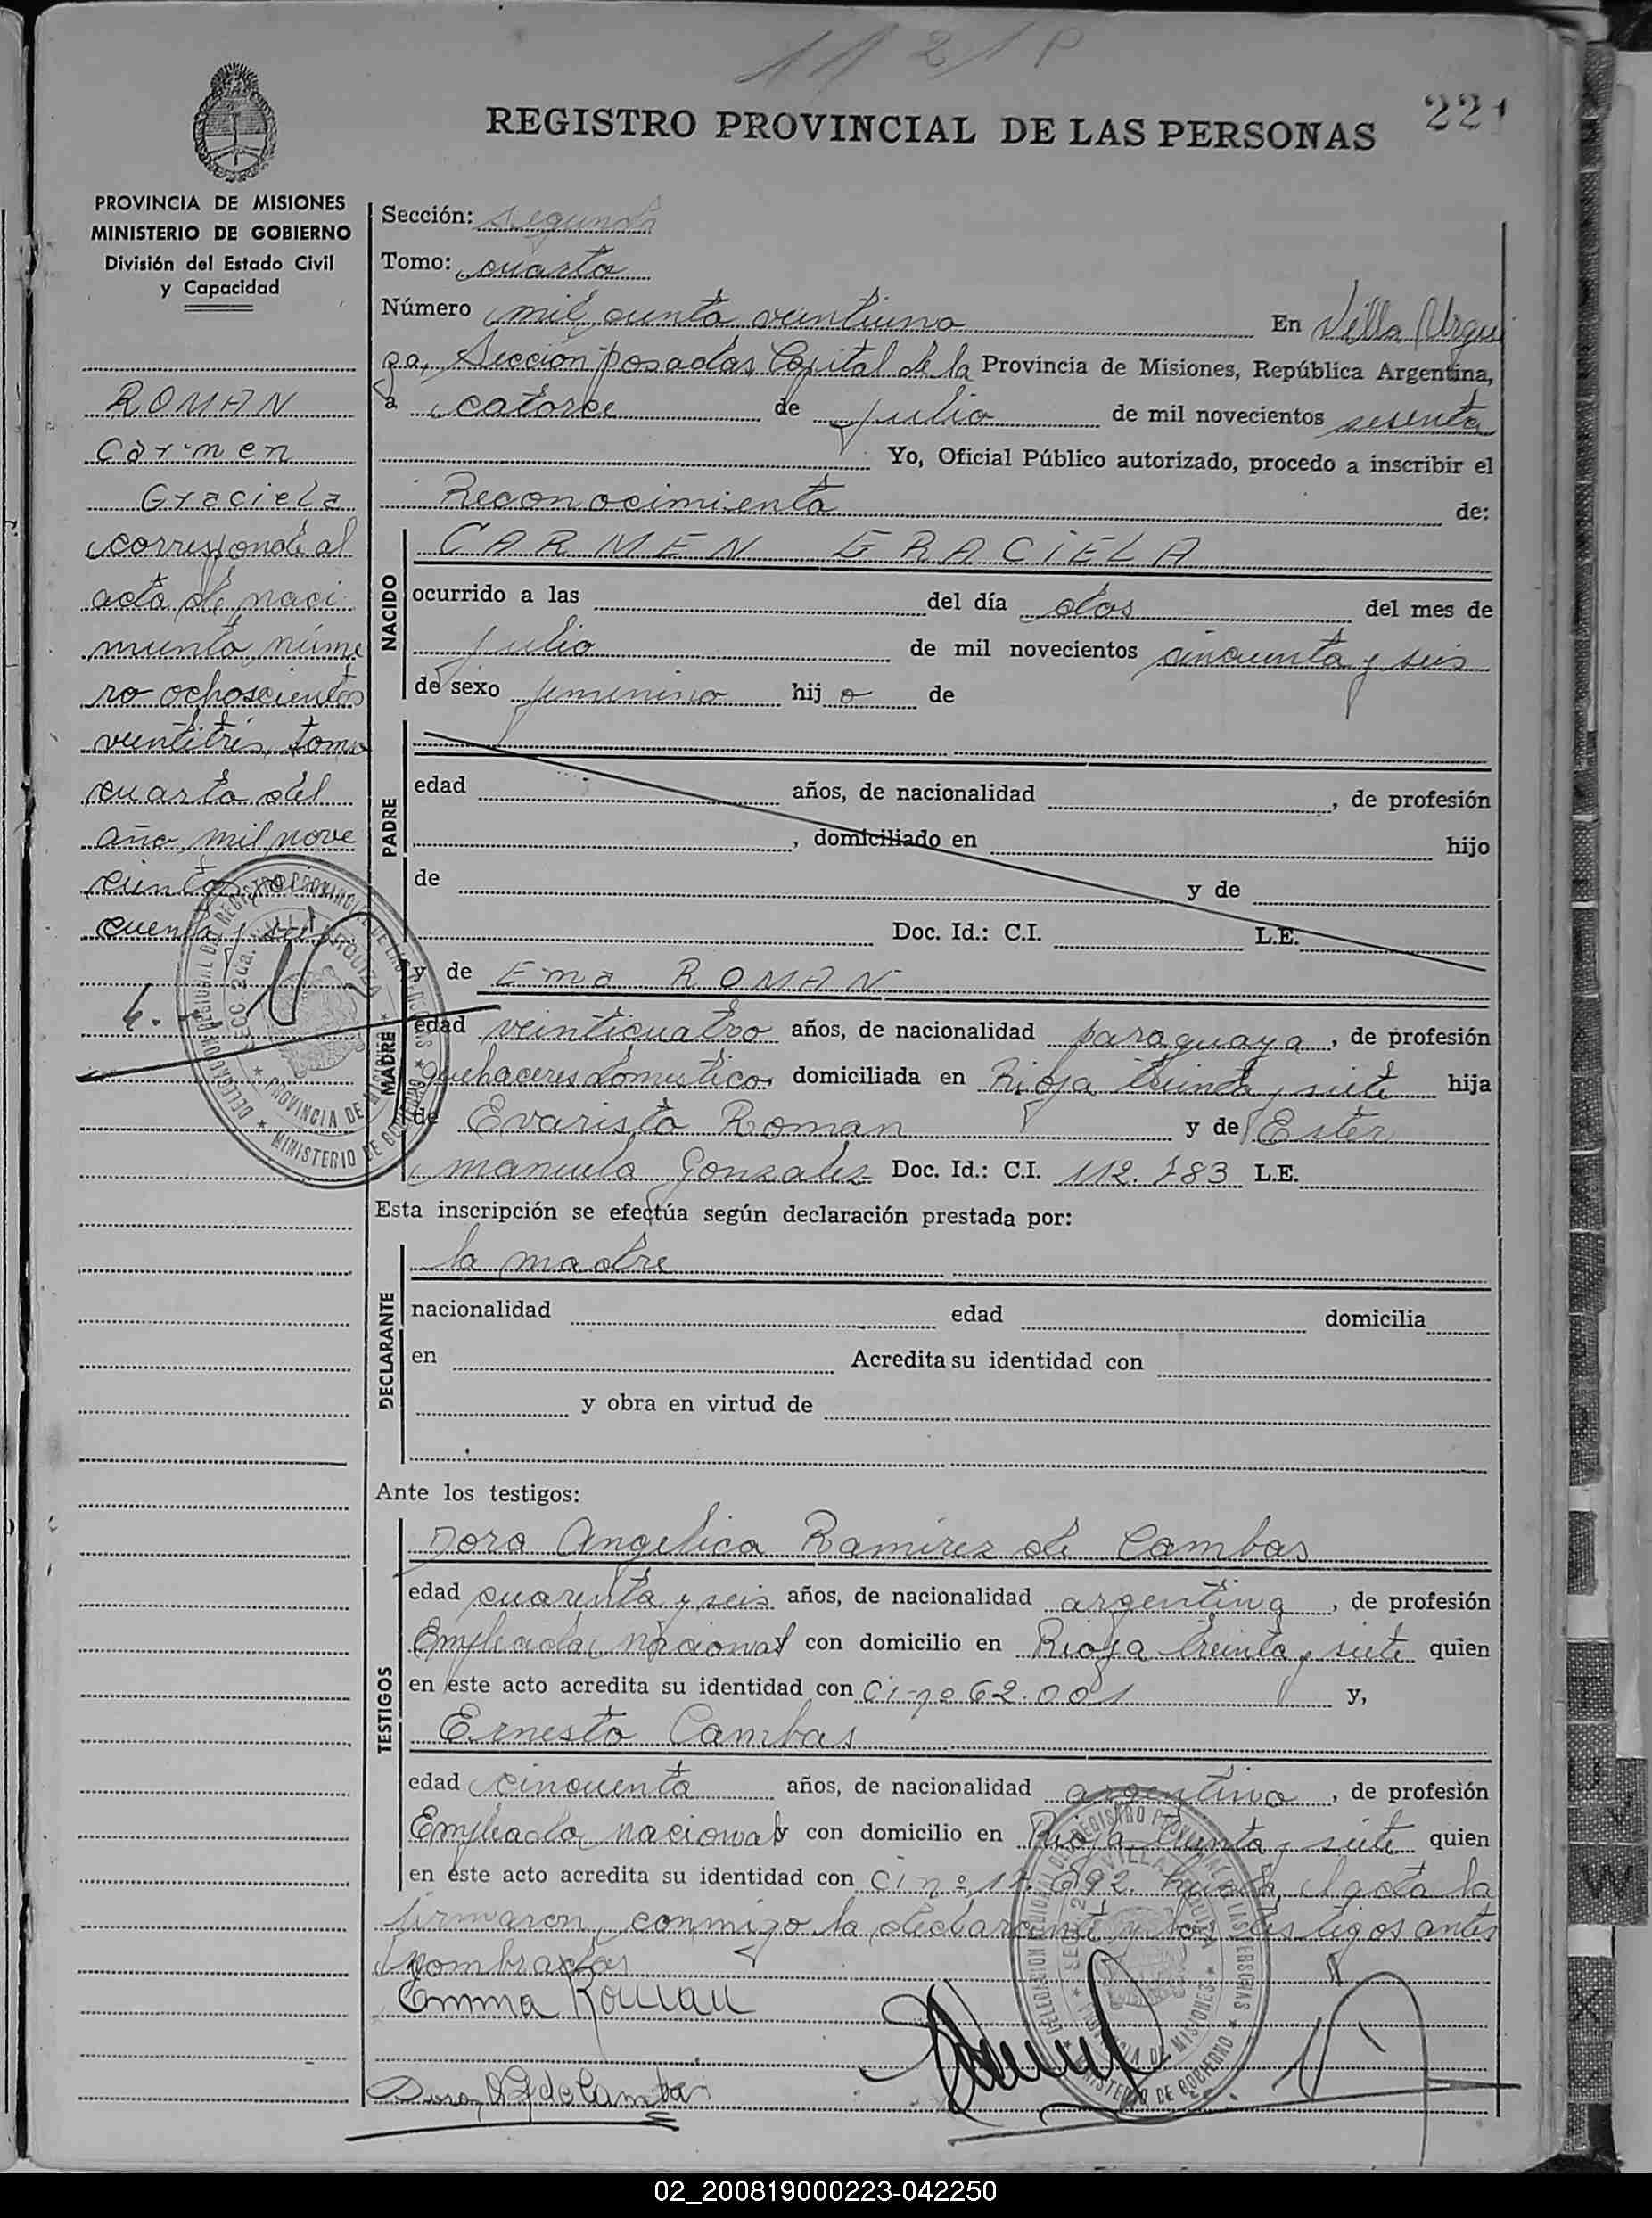 1121P
221
REGISTRO PROVINCIAL DE LAS PERSONAS
PROVINCIA DE MISIONES
MINISTERIO DE GOBIERNO
División del Estado Civil
y Capacidad
ROMAN
Carmen
Graciela
corresponde al
acta de naci
miento, núme
ro ochoscientos
veintitrés, tomo
cuarto del
año mil nove
cientos cin
cuenta y seis
Sección: segunda
Tomo: cuarto
Número mil ciento veintiuno En Villa Urqui
za, Sección posadas Capital de la Provincia de Misiones, República Argentina,
a catorce de julio de mil novecientos sesenta
Yo, Oficial Público autorizado, procedo a inscribir el
Reconocimiento de:
NACIDO
CARMEN GRACIELA
ocurrido a las del día dos del mes de
julio de mil novecientos cincuenta y seis
de sexo femenino hij a de
PADRE
edad años, de nacionalidad , de profesión
, domiciliado en hijo
de y de
Doc. Id.: C.I. L.E.
MADRE
y de Ema ROMAN
edad veinticuatro años, de nacionalidad paraguaya, de profesión
quehaceres domesticos domiciliada en Rioja treinta y siete hija
de Evaristo Roman y de Ester
manuela Gonzalez Doc. Id.: C.I. 112.783 L.E.
Esta inscripción se efectúa según declaración prestada por:
DECLARANTE
la madre
nacionalidad edad domicilia
en Acredita su identidad con
y obra en virtud de
Ante los testigos:
TESTIGOS
Dora Angelica Ramirez de Cambas
edad cuarenta y seis años, de nacionalidad argentina, de profesión
Empleada nacional con domicilio en Rioja treinta y siete quien
en este acto acredita su identidad con Ci-nº 62.001 y,
Ernesto Cambas
edad cincuenta años, de nacionalidad argentino, de profesión
Empleado nacional y con domicilio en Rioja treinta y siete quien
en este acto acredita su identidad con Ci nº 17.692. el acta la
firmaron, conmigo la declarante y los testigos antes
nombrados
Emma Roman
Dora R de Cambas
DELEGACION REGIONAL DEL REGISTRO PROVINCIAL DE LAS PERSONAS
SECC 2da. VILLA URQUIZA
PROVINCIA DE MISIONES
MINISTERIO DE GOBIERNO
DELEGACION REGIONAL DEL REGISTRO PROVINCIAL DE LAS PERSONAS
SECC 2da. VILLA URQUIZA
PROVINCIA DE MISIONES
MINISTERIO DE GOBIERNO
02_200819000223-042250